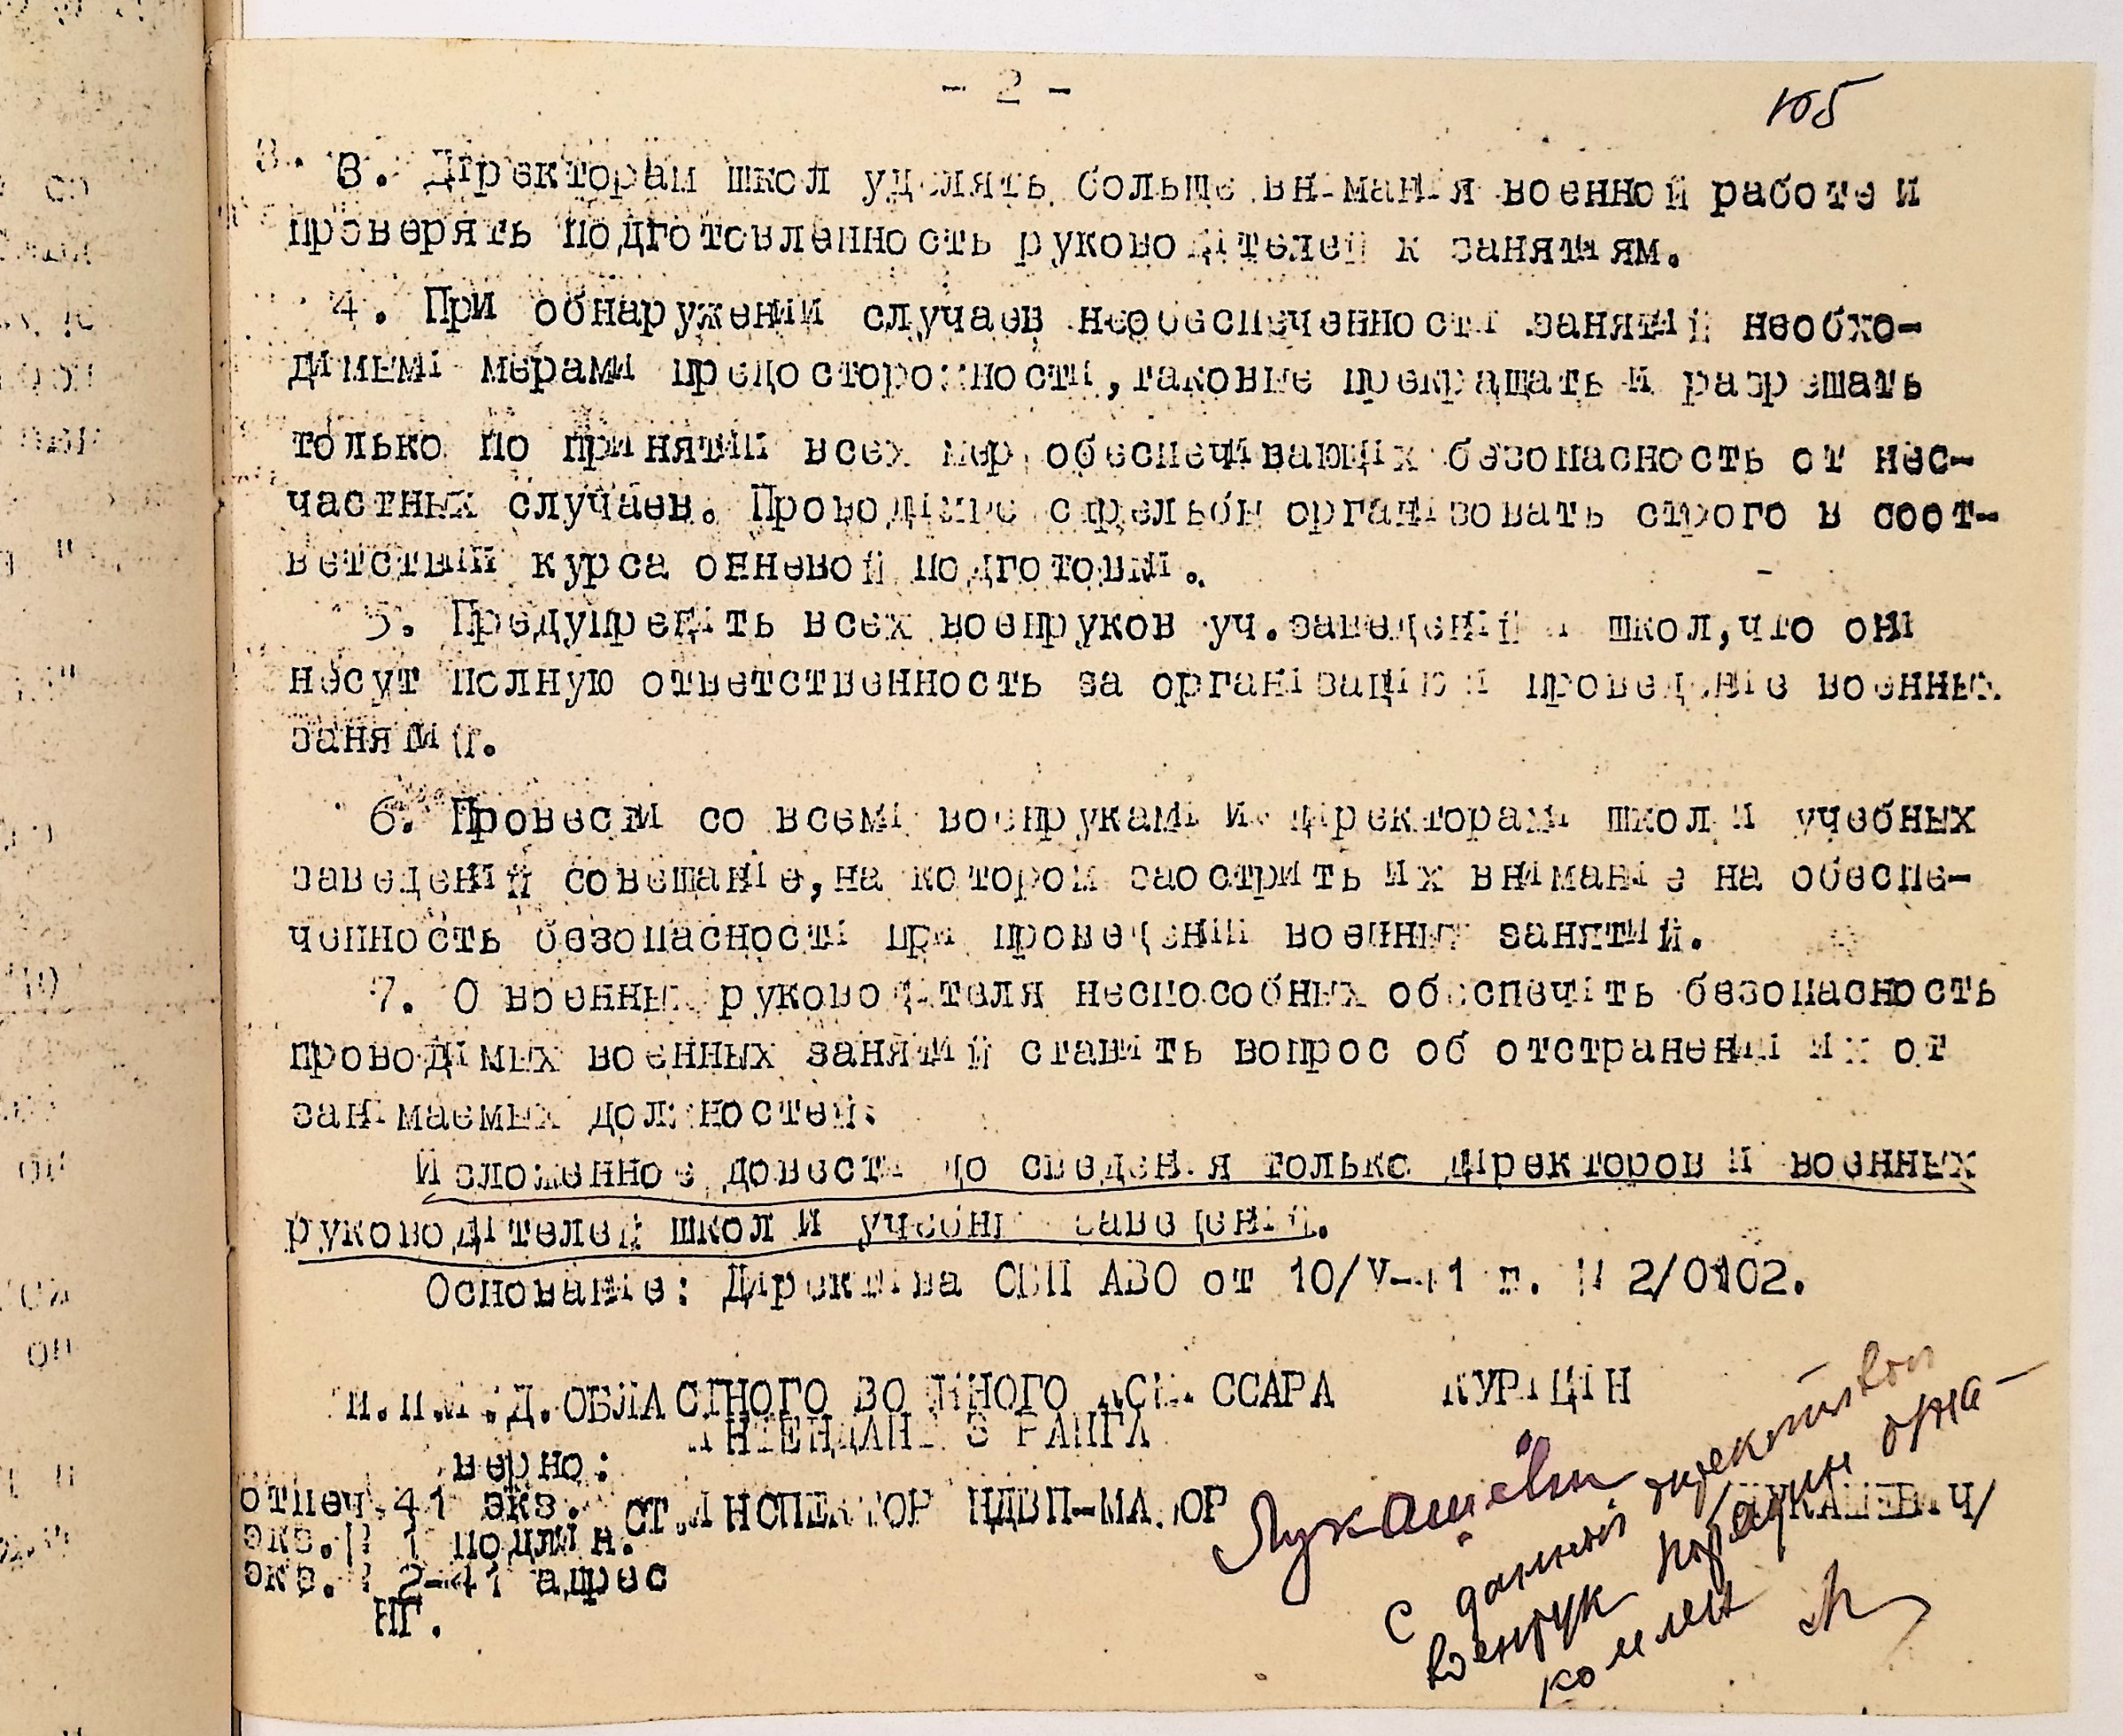 - 2 -
105
3. Директорам школ уделять больше внимания военной работе и
проверять подготовленность руководителей к занятиям.
4. При обнаружении случаев необеспеченности занятий необхо-
димыми мерами предосторожности, таковые прекращать и разрешать
только по принятии всех мер обеспечивающих безопасность от нес-
частных случаев. Проводимые стрельбы организовать строго в соот-
ветствии курса огневой подготовки.
5. Предупредить всех военруков уч.заведений и школ,что они
несут полную ответственность за организацию и проведение военных
занятий.
6. Провести со всеми военруками и директорами школ и учебных
заведений совещание,на котором заострить их внимание на обеспе-
ченность безопасности при проведении военных занятий.
7. О военных руководителя неспособных обеспечить безопасность
проводимых военных занятий ставить вопрос об отстранении их от
занимаемых должностей.
Изложенное довести до сведения только директоров и военных
руководителей школ и учебных заведений.
Основание: Директива СВП АВО от 10/V-41 г. № 2/0102.
ОБЛАСТНОГО ВОЕННОГО КОМИССАРА КУРИЦИН
ИНТЕНДАНТ 3 РАНГА
верно:
отпеч.41 экз. СТ.ИНСПЕКТОР НДВП-МАЙОР /ЛУКАШЕВИЧ/
экз.№ 1 подлин.
экз.№ 2-41 адрес
НГ.
Лукашевич
С данной директивой
военрук